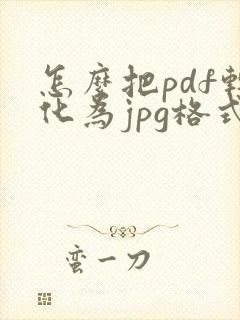 怎麼把pdf轉
化為jpg格式
蛮一刀